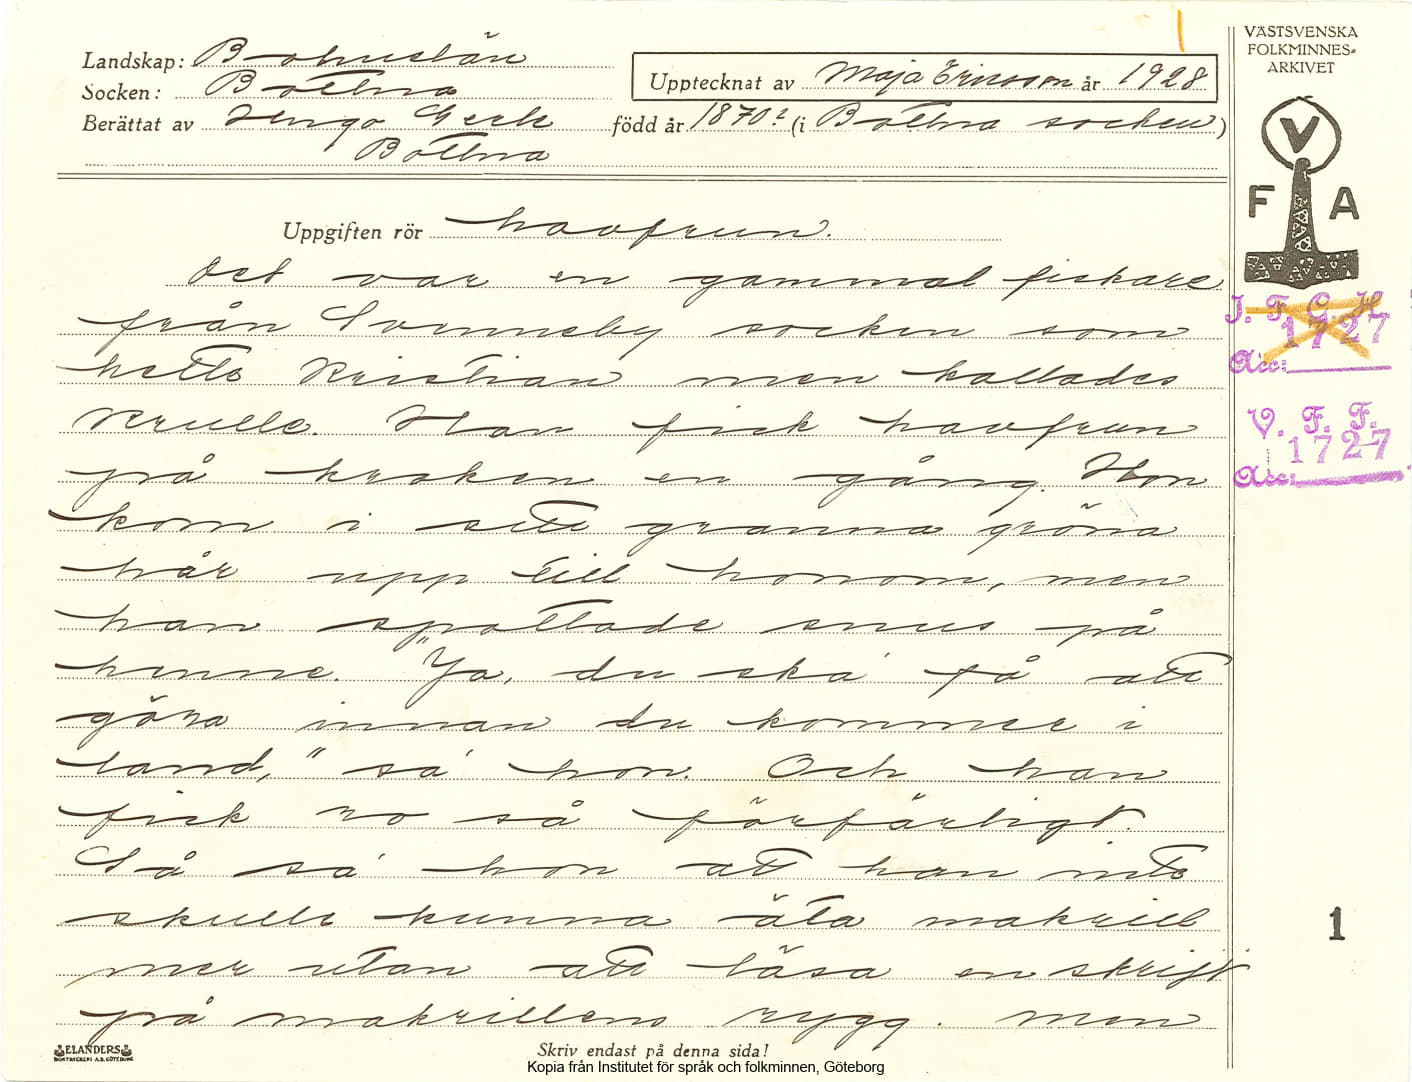 Landskap: Bohuslän
Socken: Bottna
Berättat av Hugo Gerle
Bottna
Upptecknat av Maja Ericsson år 1928
född år 1870? (i Bottna socken)
VÄSTSVENSKA
FOLKMINNES-
ARKIVET
V
F A
I. F. G. H.
1727
Acc:
V. F. F.
1727
Acc:
Uppgiften rör havfrun.
Det var en gammal fiskare
från Svenneby socken som
hette Kristian men kallades
Krulle. Han fick havfrun
på kroken en gång. Hon
kom i sitt granna gröna
hår upp till honom, men
han spottade snus på
henne. "Ja, du ska få att
göra innan du kommer i
land," sa hon. Och han
fick ro så förfärligt.
Så sa hon att han inte
skulle kunna äta makrill
mer utan att läsa en skrift
på makrillens rygg. Men
1
ELANDERS
BOKTRYCKERI A.B. GÖTEBORG
Skriv endast på denna sida!
Kopia från Institutet för språk och folkminnen, Göteborg